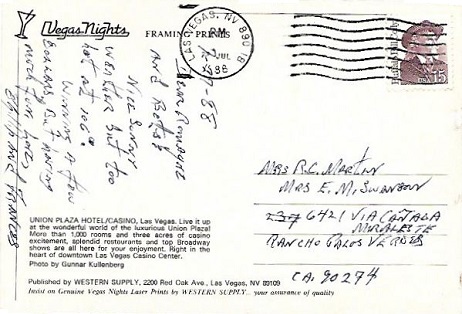 Vegas Nights
FRAMING PRINTS
LAS VEGAS, NV 890
PM
JUL
1988
15
-88
Dear Romayne
and Betsy
Nice sunny
weather but too
hot at 106°
Winning a few
but having
much fun
and Frances
Mrs R.C. Martin
Mrs E.M. Swanson
6421 Via Cañada
Rancho Palos Verdes
CA. 90274
UNION PLAZA HOTEL/CASINO, Las Vegas. Live it up
at the wonderful world of the luxurious Union Plaza!
More than 1,000 rooms and three acres of casino
excitement, splendid restaurants and top Broadway
shows are all here for your enjoyment. Right in the
heart of downtown Las Vegas Casino Center.
Photo by Gunnar Kullenberg
Published by WESTERN SUPPLY, 2200 Red Oak Ave., Las Vegas, NV 89109
Insist on Genuine Vegas Nights Laser Prints by WESTERN SUPPLY... your assurance of quality